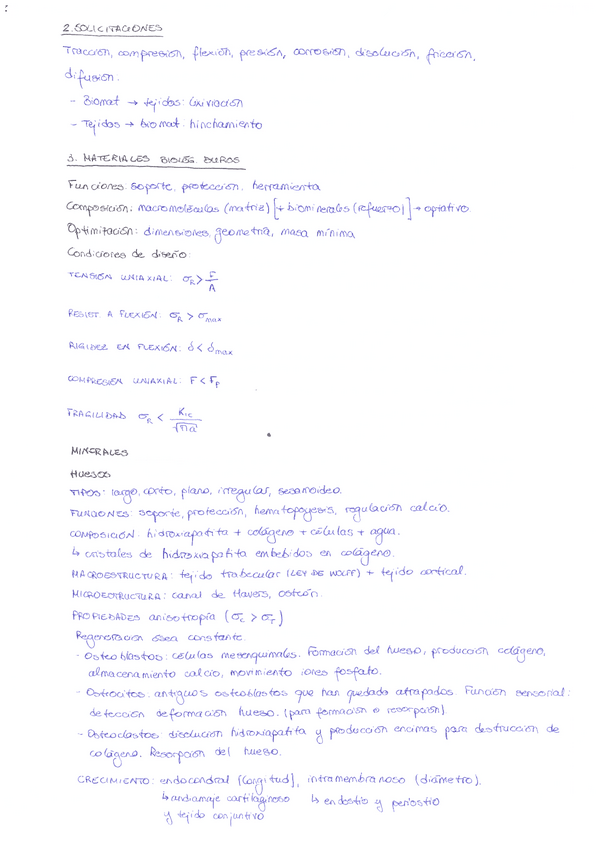 2. SOLICITACIONES
Tracción, compresión, flexión, presión, corrosión, disolución, fricción,
difusión.
- Biomat → tejidos: lixiviación
- Tejidos → biomat: hinchamiento
3. MATERIALES BIOLÓG. DUROS
Funciones: soporte, protección, herramienta
Composición: macromoléculas (matriz) [+ biominerales (refuerzo)] → optativo
Optimitación: dimensiones, geometría, masa mínima
Condiciones de diseño:
TENSIÓN UNIAXIAL: σ_R > F/A
RESIST. A FLEXIÓN: σ_R > σ_max
RIGIDEZ EN FLEXIÓN: δ < δ_max
COMPRESIÓN UNIAXIAL: F < F_P
FRAGILIDAD σ_R < K_IC/√πa
MINERALES
HUESOS
TIPOS: largo, corto, plano, irregular, sesamoideo.
FUNCIONES: soporte, protección, hematopoyesis, regulación calcio.
COMPOSICIÓN: hidroxiapatita + colágeno + células + agua.
↳ cristales de hidroxiapatita embebidos en colágeno.
MACROESTRUCTURA: tejido trabecular (LEY DE WOLFF) + tejido cortical.
MICROESTRUCTURA: canal de Havers, osteón.
PROPIEDADES anisotropía (σ_c > σ_T)
Regeneración ósea constante.
- Osteoblastos: células mesenquimales. Formación del hueso, producción colágeno,
almacenamiento calcio, movimiento iones fosfato.
- Ostrocitos: antiguos osteoblastos que han quedado atrapados. Función sensorial:
detección deformación hueso. (para formación o resorpción).
- Osteoclastos: disolución hidroxiapatita y producción encimas para destrucción de
colágeno. Resorpción del hueso.
CRECIMIENTO: endocondral (longitud), intramembranoso (diámetro).
↳ andamiaje cartilaginoso ↳ endostio y periostio
y tejido conjuntivo